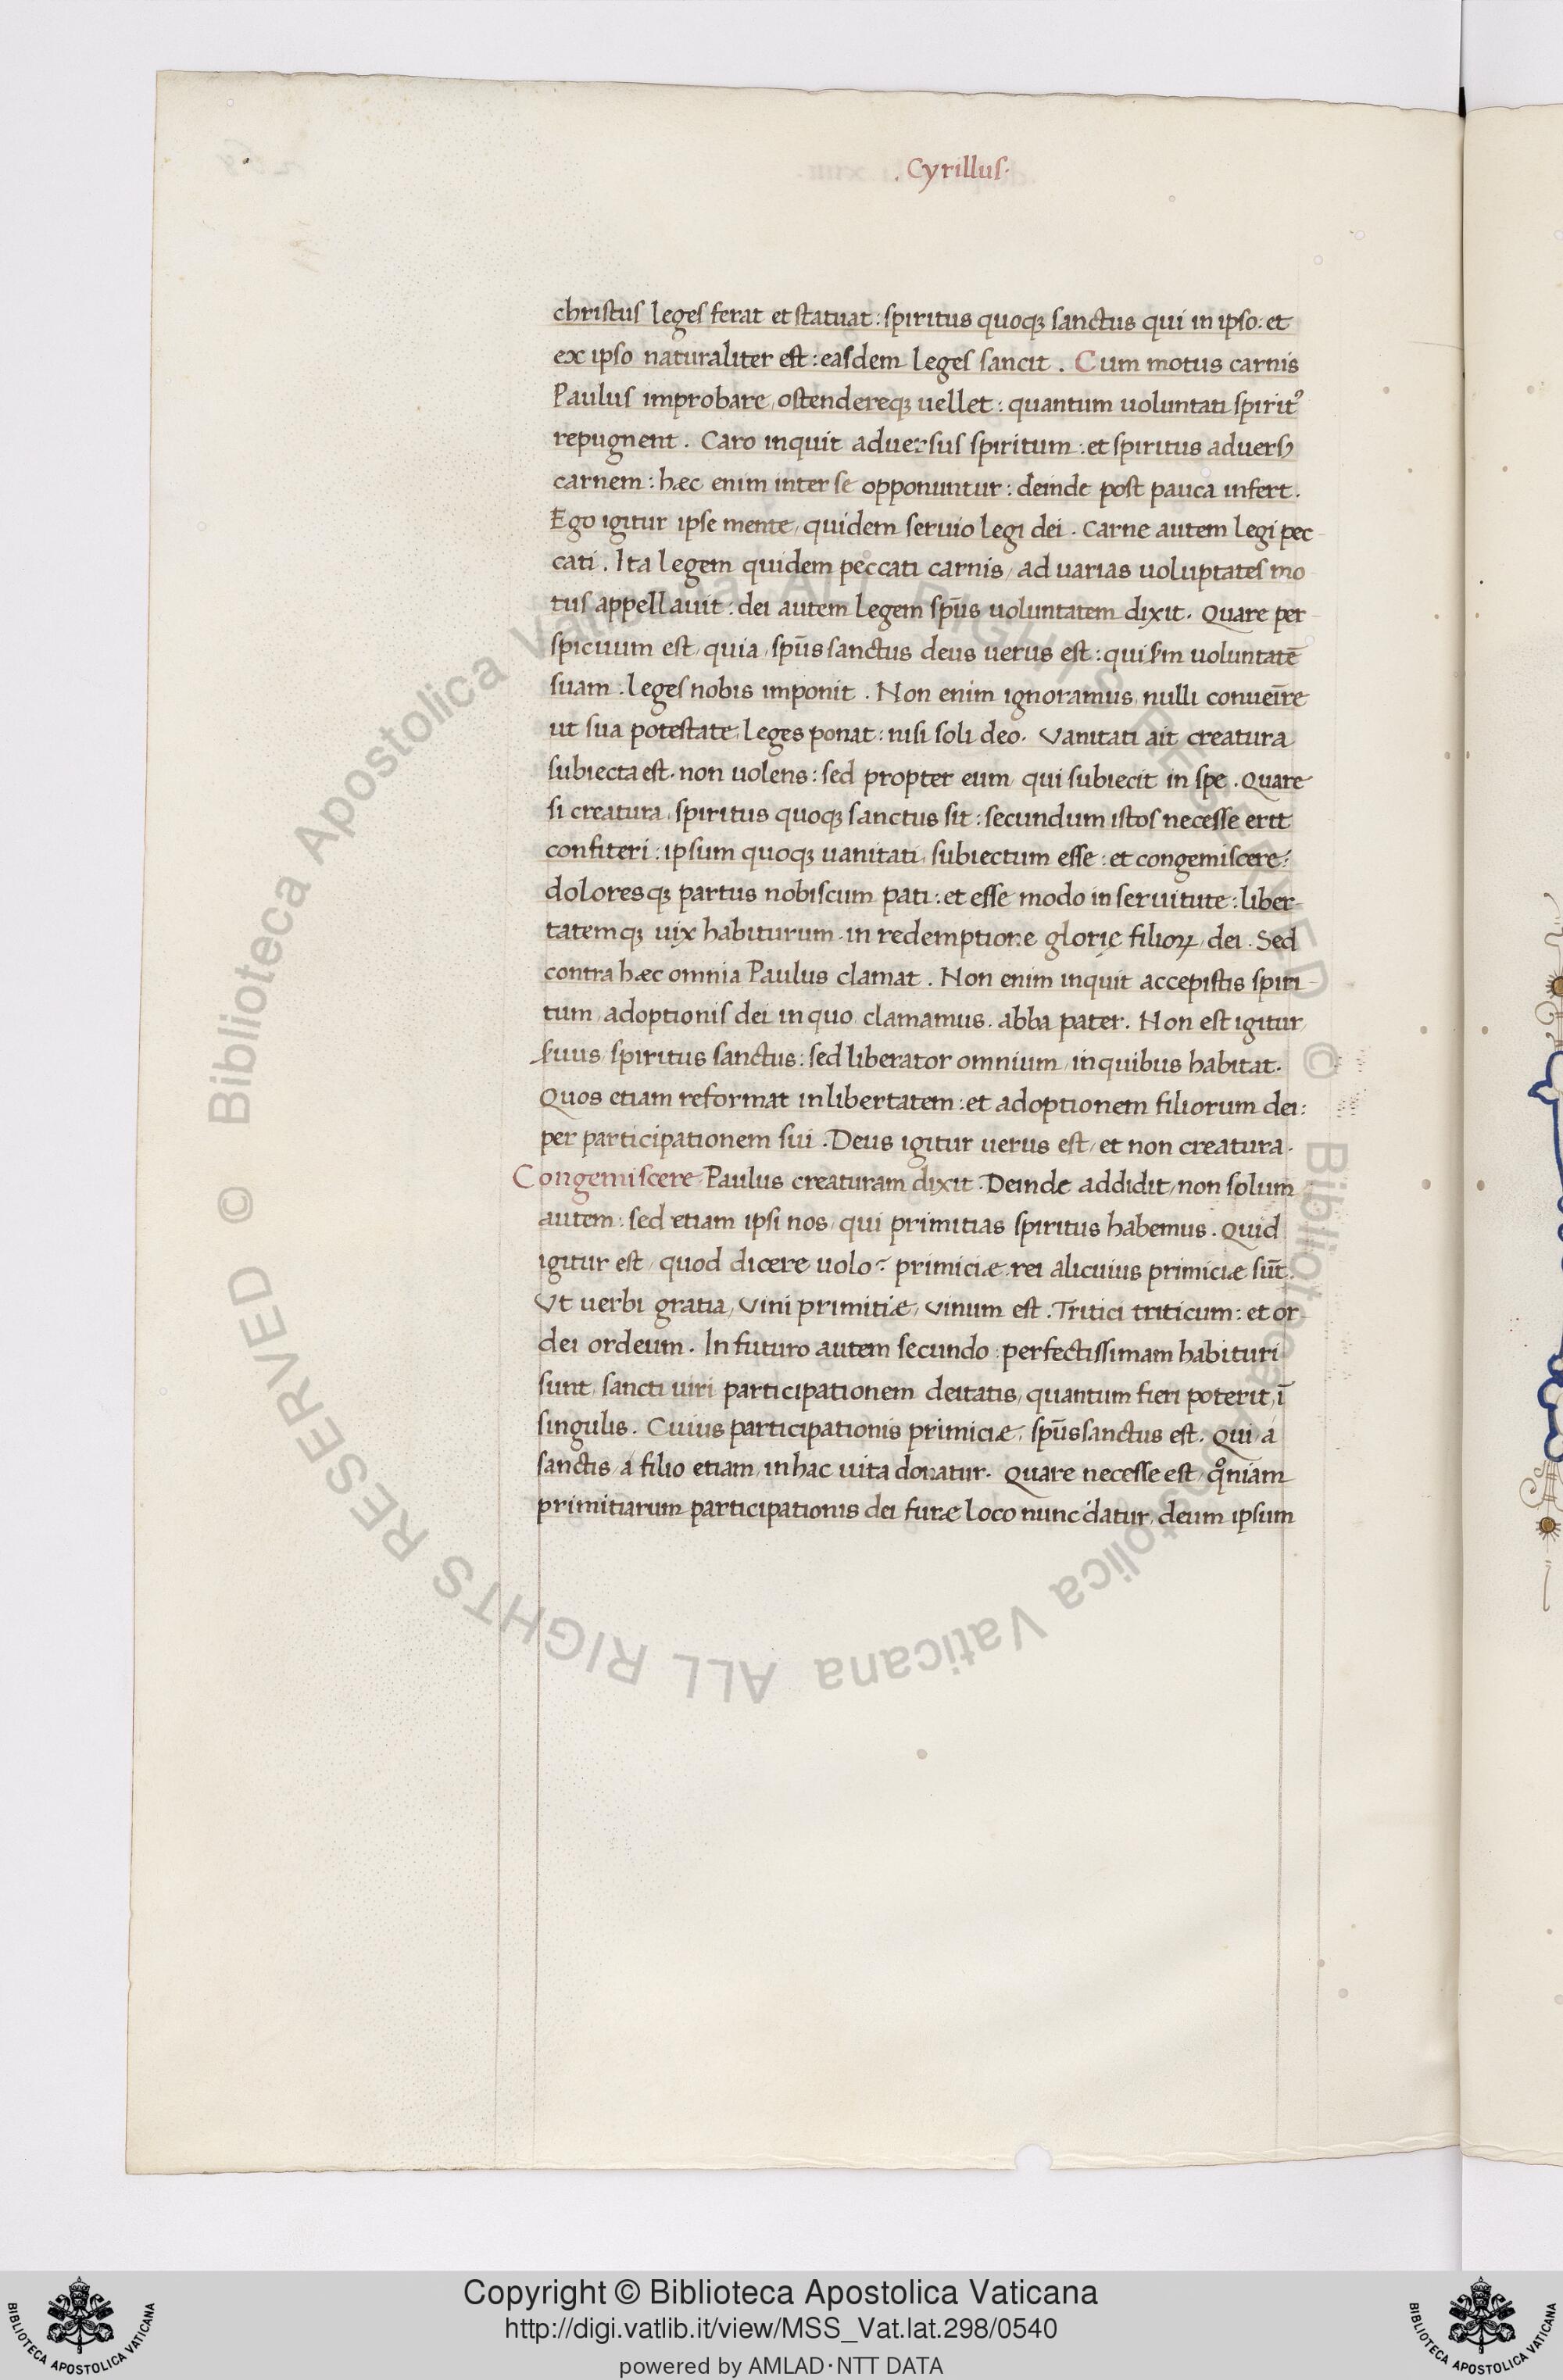 . Cyrillus.
christus leges ferat et statuat : spiritus quoqꝫ sanctus qui in ipso : et
ex ipso naturaliter est : easdem leges sancit . Cum motus carnis
Paulus improbare, ostendereqꝫ uellet : quantum uoluntati spiritꝰ
repugnent . Caro inquit aduersus spiritum : et spiritus aduersꝰ
carnem : hæc enim inter se opponuntur : deinde post pauca infert .
Ego igitur ipse mente, quidem seruio legi dei . Carne autem legi pec-
cati . Ita legem quidem peccati carnis, ad uarias uoluptates mo
tus appellauit : dei autem legem spūs uoluntatem dixit . Quare per-
spicuum est, quia, spūs sanctus deus uerus est : qui sm uoluntatē
suam : leges nobis imponit . Non enim ignoramus, nulli conueīre
ut sua potestate, leges ponat : nisi soli deo . Vanitati ait creatura
subiecta est . non uolens : sed propter eum qui subiecit in spe . Quare
si creatura, spiritus quoqꝫ sanctus sit : secundum istos necesse erit
confiteri : ipsum quoqꝫ uanitati, subiectum esse : et congemiscere :
doloresqꝫ partus nobiscum pati : et esse modo in seruitute : liber-
tatemqꝫ uix habiturum . in redemptione glorię filioꝝ, dei . Sed
contra hæc omnia Paulus clamat . Non enim inquit accepistis spiri-
tum adoptionis dei in quo clamamus . abba pater . Non est igitur
suus, spiritus sanctus : sed liberator omnium, in quibus habitat .
Quos etiam reformat in libertatem : et adoptionem filiorum dei :
per participationem sui . Deus igitur uerus est, et non creatura .
Congemiscere Paulus creaturam dixit . Deinde addidit, non solum
autem : sed etiam ipsi nos, qui primitias spiritus habemus . Quid
igitur est, quod dicere uolo ? primiciæ rei alicuius primiciæ sūt .
Vt uerbi gratia, Vini primitiæ, vinum est . Tritici triticum : et or-
dei ordeum . In futuro autem secundo : perfectissimam habituri
sunt, sancti uiri participationem deitatis, quantum fieri poterit, ī
singulis . Cuius participationis primiciæ, spūs sanctus est . Qui á
sanctis, á filio etiam, in hac uita donatur . Quare necesse est, qͦniam
primitiarum participationis dei futuræ loco nunc datur, deum ipsum
© Biblioteca Apostolica Vaticana ALL RIGHTS RESERVED © Biblioteca Apostolica Vaticana ALL RIGHTS RESERVED
BIBLIOTECA APOSTOLICA VATICANA
Copyright © Biblioteca Apostolica Vaticana
http://digi.vatlib.it/view/MSS_Vat.lat.298/0540
powered by AMLAD・NTT DATA
BIBLIOTECA APOSTOLICA VATICANA